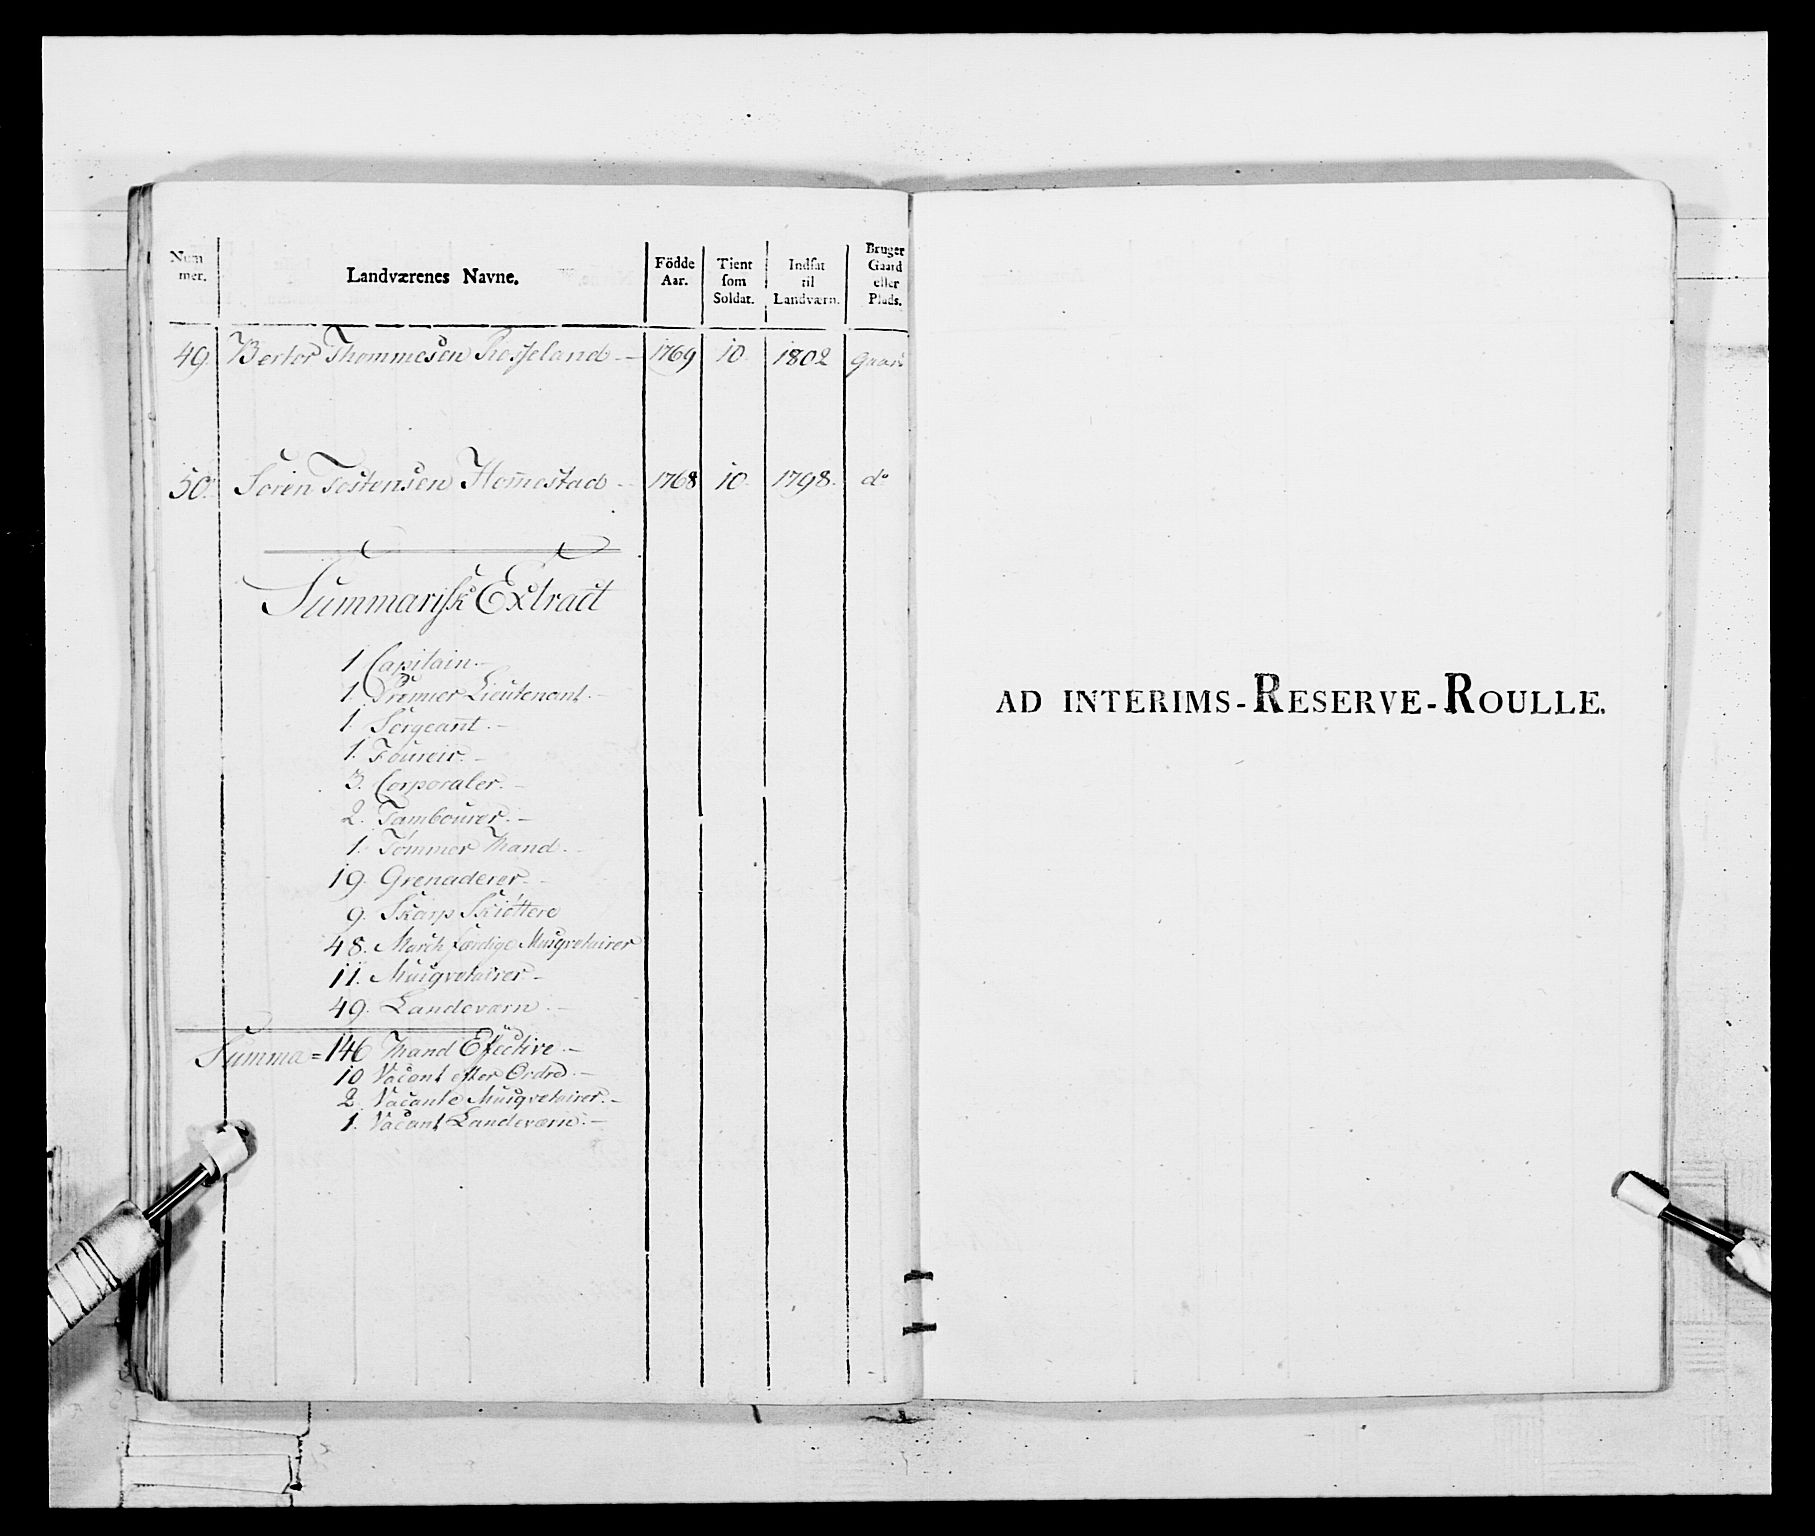 Num mer. Landværenes Navne. Födde Aar. Tient som Soldat. Indsat til Landværn. Bruger Gaard eller Plads.
49. Berter Thommesen Rosseland — 1769 10. 1802 Gaard
50. Sören Tostensen Hom̄estad — 1768 10. 1798. do
Summarisk Extract
1 Capitain.—
1. Premier Lieutenant.—
1. Sergeant.—
1. Foureir.—
3. Corporaler.—
2. Tambourer.—
1. Tömmer Mand.—
19. Grenaderer.—
9. Skarp Skiöttere
48. March færdige Musqvetairer
11. Musqvetairer—
49. Landeværn.—
Summa = 146 Mand Efective.—
10 Vacant efter Ordre.—
2. Vacante Musqvetairer.—
1. Vacant Landeværn.—
AD INTERIMS-RESERVE-ROULLE.